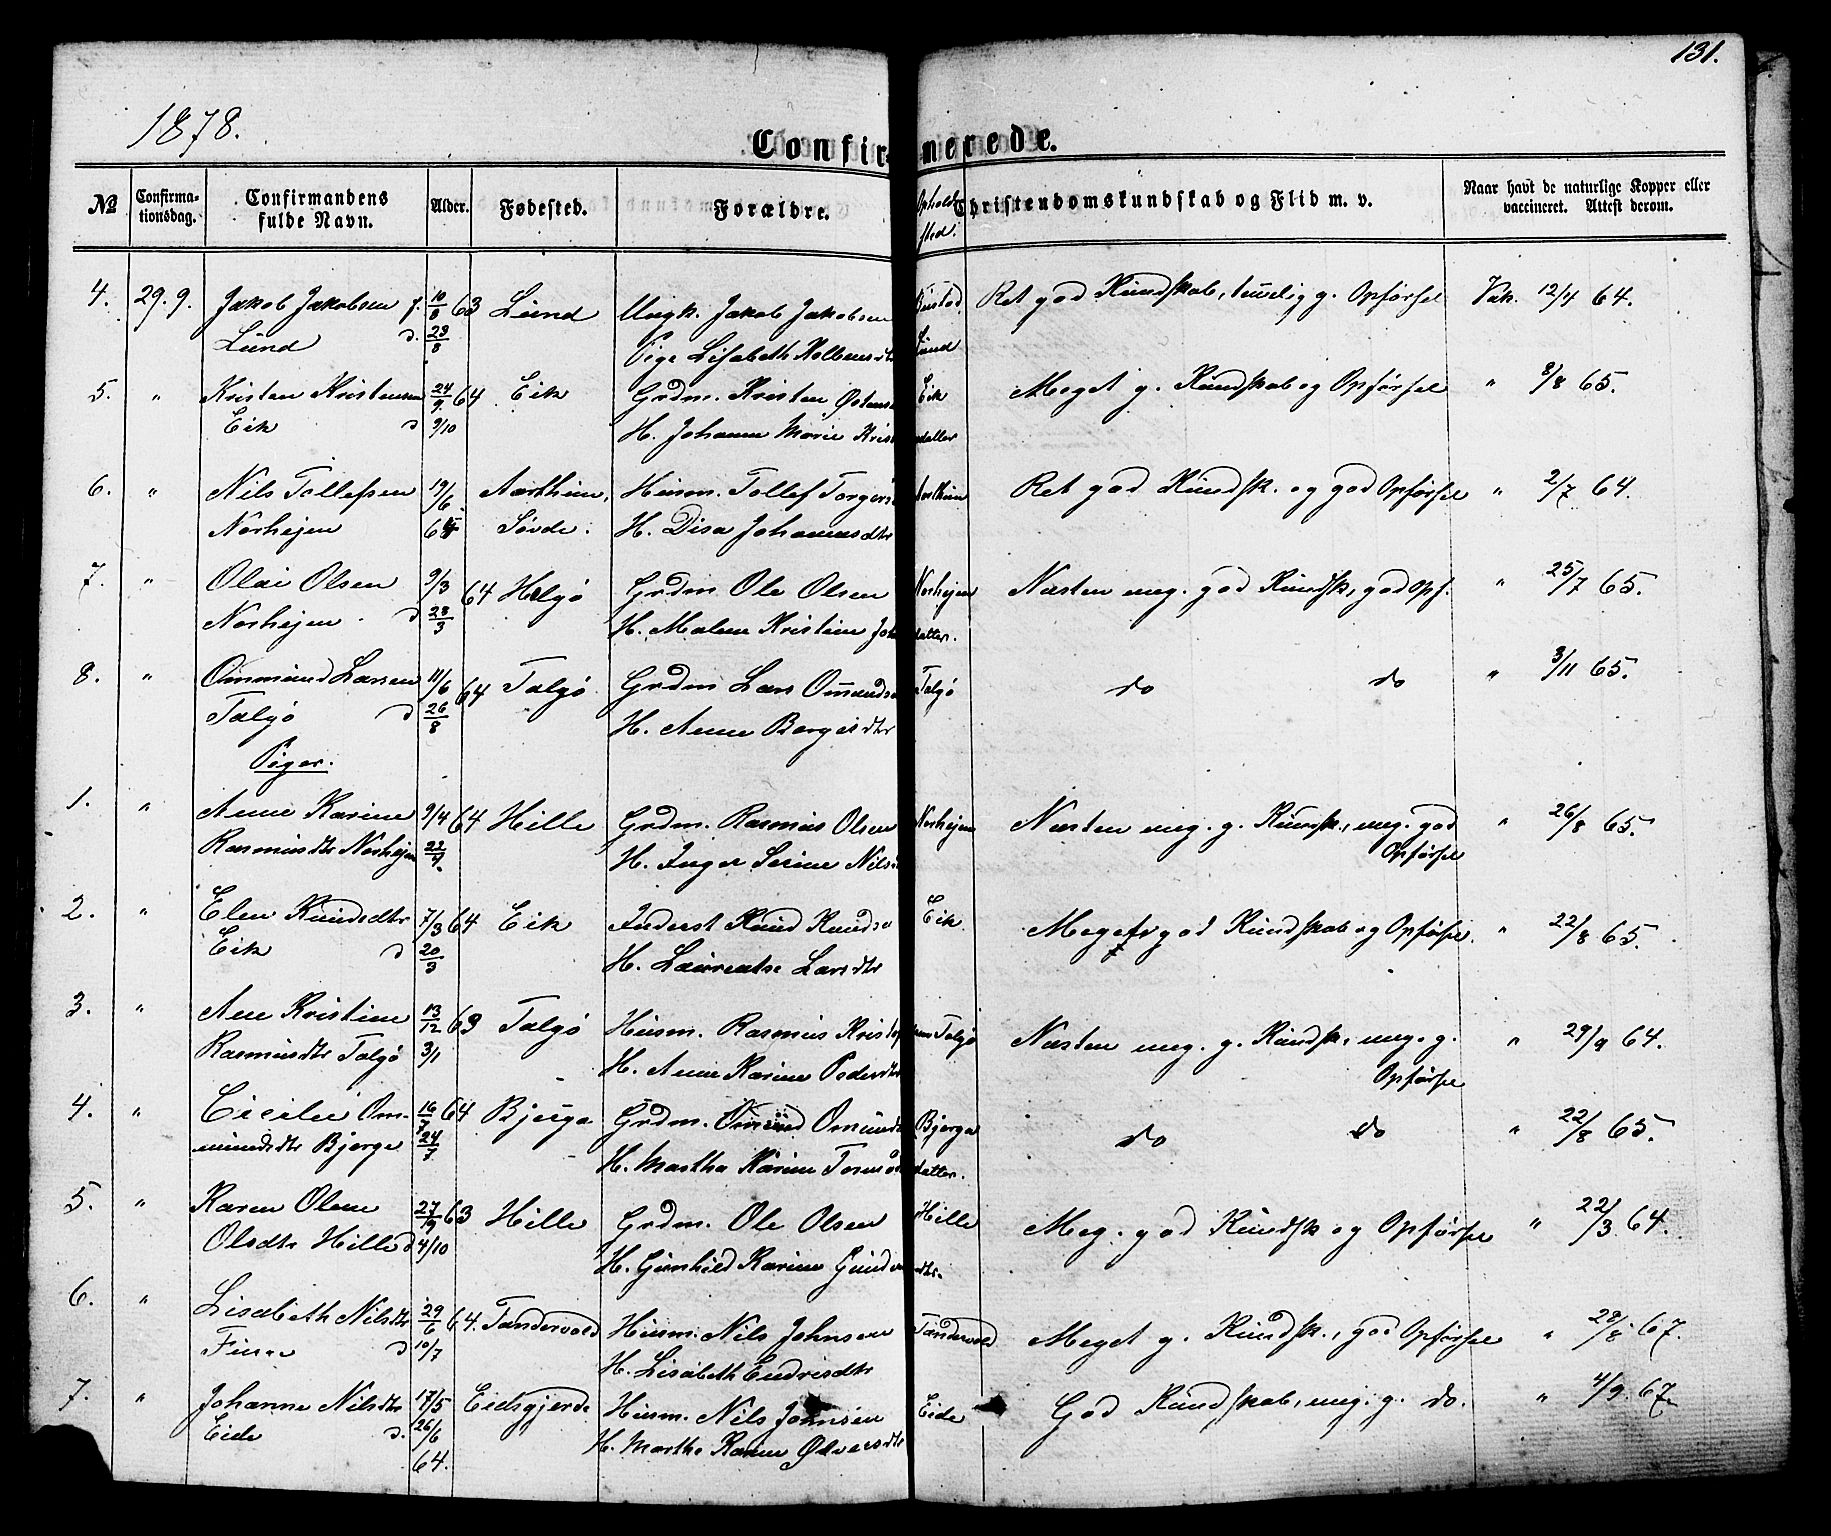 131.
1878.
Confirmerede.
No Confirmationsdag. Confirmandens fulde Navn. Alder. Fødested. Forældre. Opholdssted. Christendomskundskab og Flid m. v. Naar havt de naturlige Kopper eller vaccineret. Attest derom.
4. 29.9. Jakob Jakobsen f. 10/8 63 Lund Ungk. Jakob Jakobsen Ret god Kundskab, temelig g. Opførsel Vak. 12/4 64.
Lund d. 23/8 Pige Lisabeth Lund
5. " Kristen Kristensen 24/9 64 Eik Grdm. Kristen Østens Eik Meget g. Kundskab og Opførsel " 8/8 65.
Eik d 9/10 H. Johanne Marie Kristdatter
6. " Nils Tollefsen 19/6 Aartheim, Husm. Tollef Torgers Ret god Kundsk. og god Opførsel " 2/7 64.
Norheim 64 Søvde. H. Disa Johannesdtr
7. " Olai Olsen 9/3 64 Helgø Grdm Ole Olsen Norhejen Næsten meg. god Kundsk, god Opf. " 25/7 65.
Norhejen d 28/3 H. Malene Kristine Johdatter.
8. " Ommund Larsen 11/6 64 Talgø Grdm Lars Omunds Talgø do do " 3/11 65.
Talgø d 26/8 H. Anne Borgesdtr
Piger.
1. " Anne Karine 9/4 64 Hille Grdm. Rasmus Olsen Norhejen Næsten meg. g. Kundsk., meg. god " 26/8 65.
Rasmusdtr Norhejen 22/4. H. Inger Serine Nils Opførsel
2. " Elen Knudsdtr 7/3 64 Eik Inderst Knud Knuds Eik Meget god Kundskab og Opførsel. " 22/8 65.
Eik d 20/3 H. Laureatse Larsdtr
3. " Ane Kristine 13/12 63 Talgø Husm. Rasmus Krist Talgø Næsten meg. g. Kundsk, meg. g. " 29/9 64.
Rasmusdtr Talgø 3/1 H. Anne Karine Pedersdtr Opførsel
4. " Cicilie Om- 16/7 64 Bjerga Grdm. Omund Omunds Bjerga do do " 22/8 65.
mundsdtr Bjerge 24/7 H. Martha Karine Tormodatter.
5. " Karen Olene 27/9 63 Hille Grdm. Ole Olsen Hille Meg. god Kundsk og Opførsel " 22/3 64.
Olsdtr Hille d 4/10 H. Gunhild Karine Gundersdtr.
6. " Lisabeth Nilsdtr 29/6 64. Tandervold Husm. Nils Johnsen Tandervold Meget g. Kundsk., god Opførsel " 28/8 67.
Finne d 10/7 H. Lisabeth Endresdtr
7. " Johanne Nilsdtr 17/5 Eidsgjerde Husm. Nils Johnsen Eide God Kundskab, meg. g. do. " 4/9 67.
Eide d. 26/6 H. Marthe Karine Ølversdtr
64.